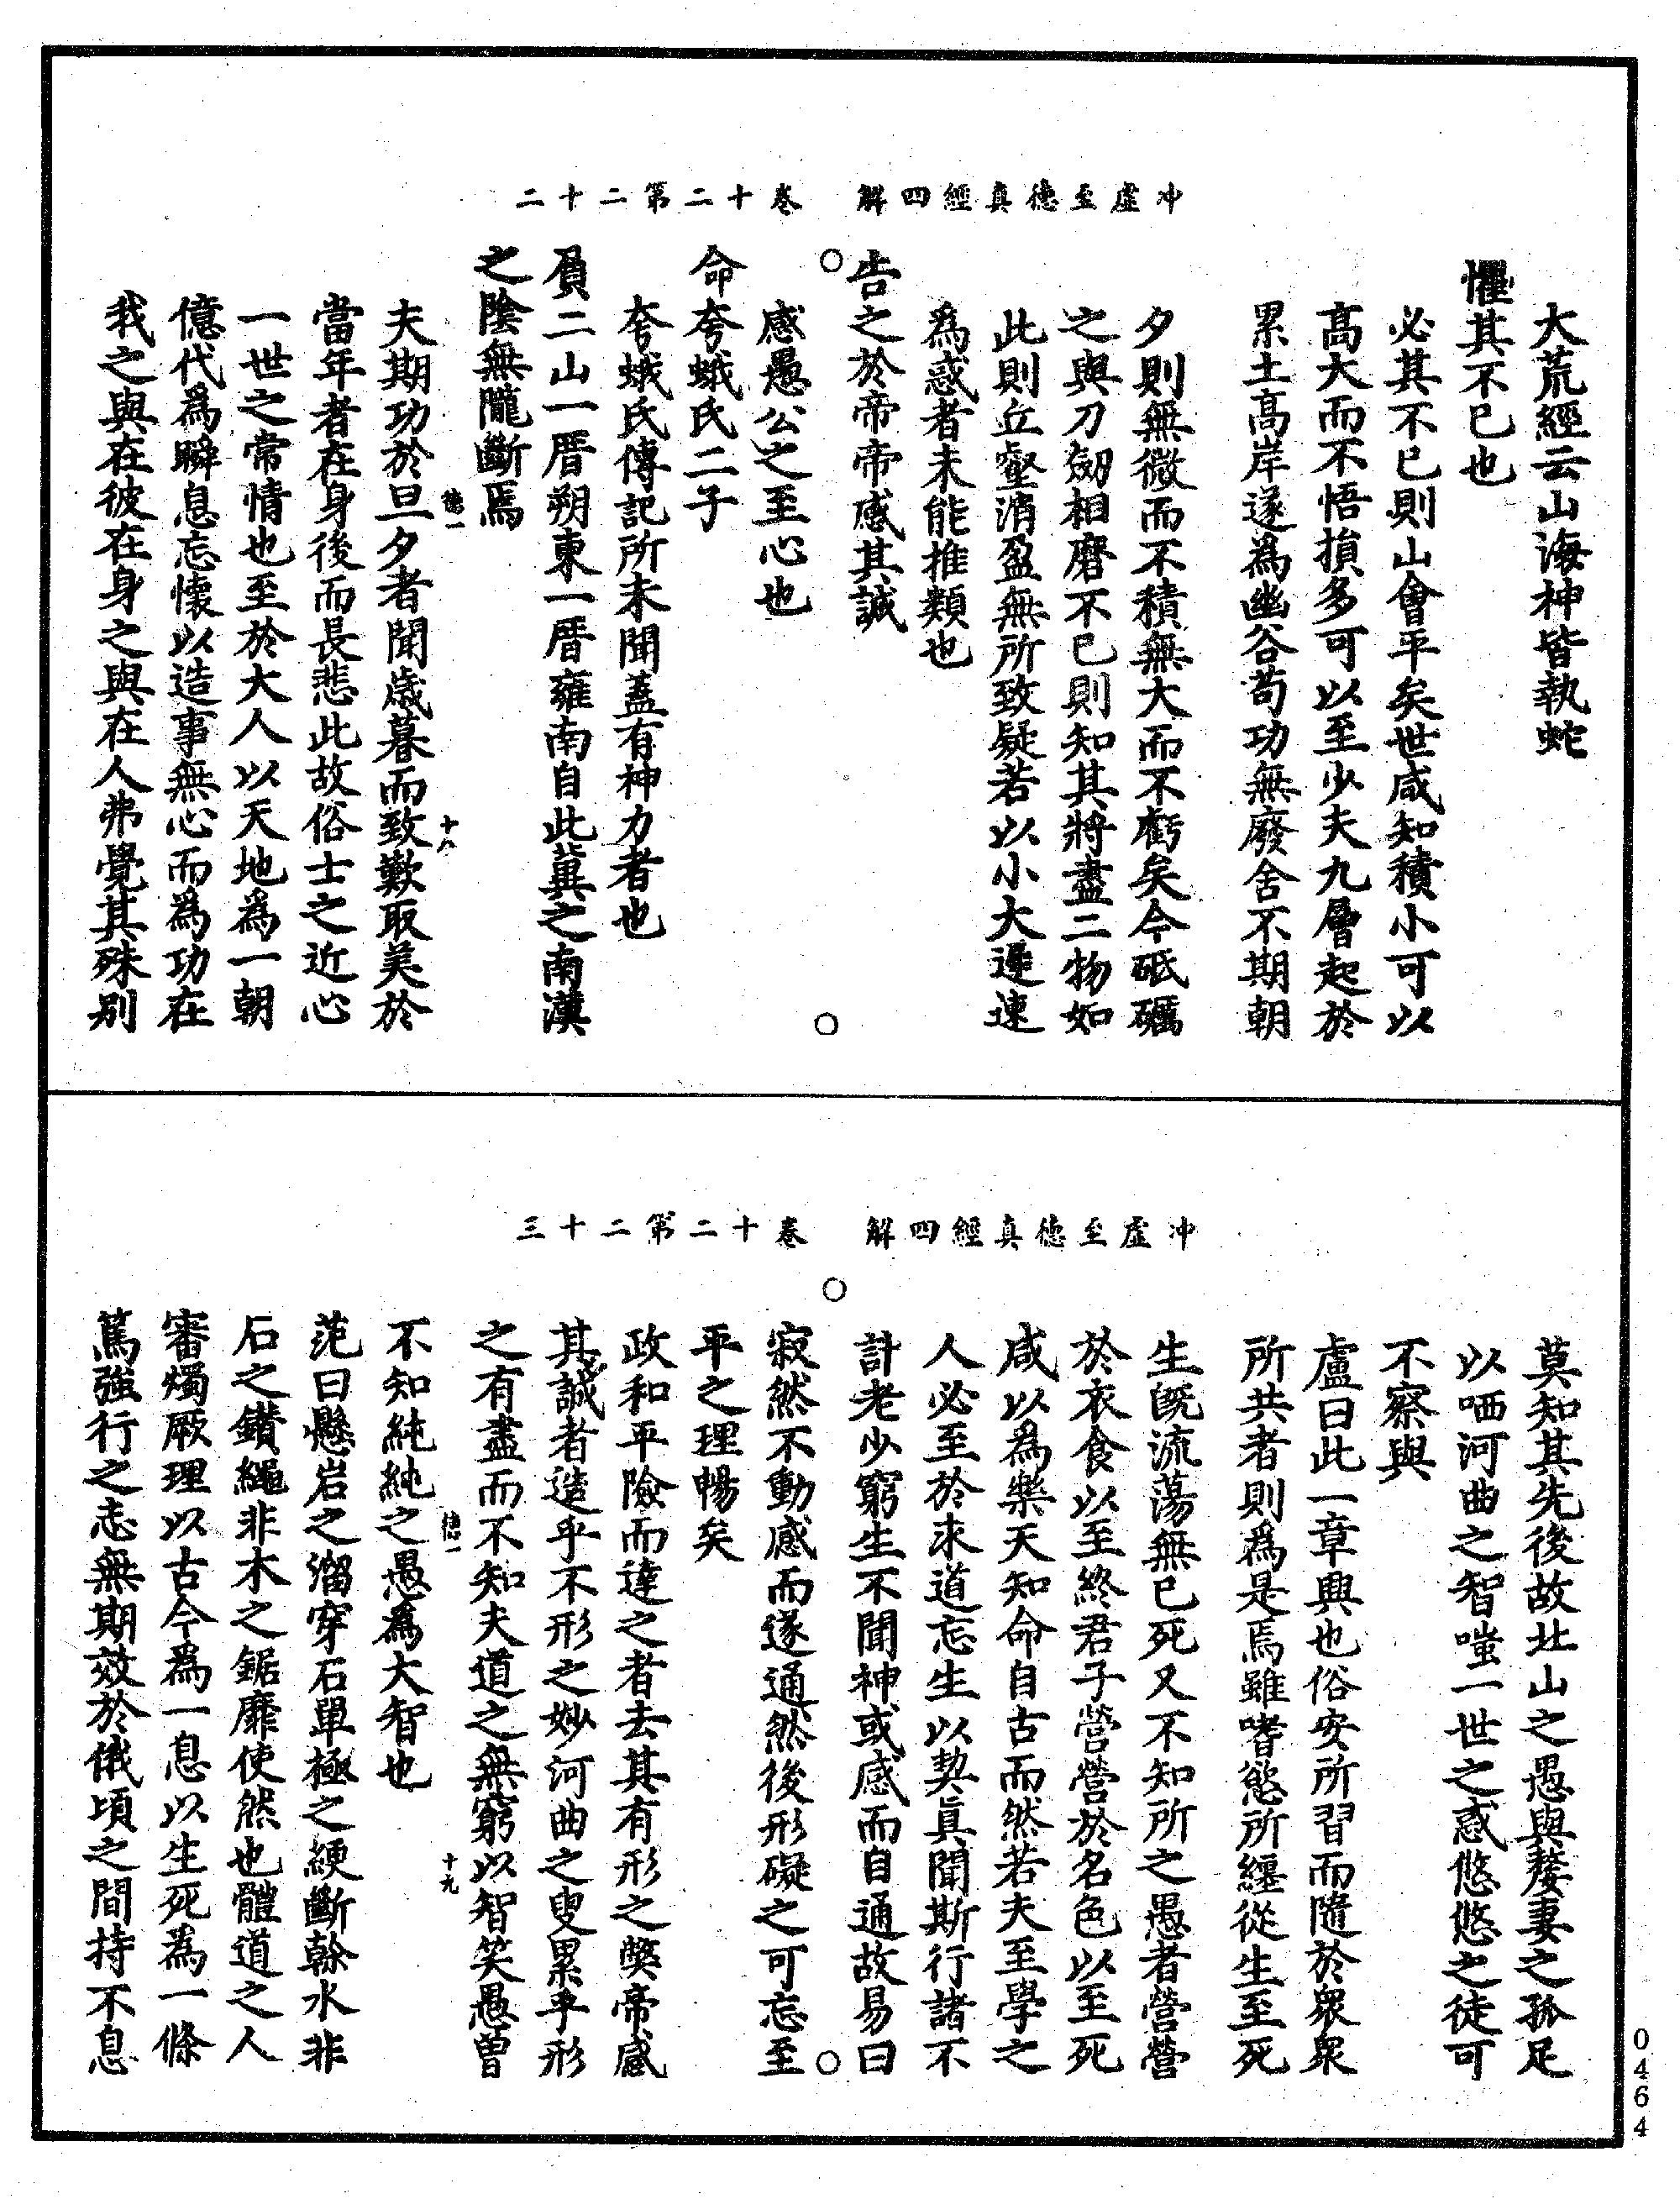 冲虛至德真經四解　卷二十第二十二
大荒經云山海神皆執蛇
懼其不已也
必其不已則山會平矣世咸知積小可以
高大而不悟損多可以至少夫九層起於
累土高岸遂為幽谷苟功無廢舍不期朝
夕則無微而不積無大而不虧矣今砥礪
之與刀劒相磨不已則知其將盡二物如
此則丘壑消盈無所致疑若以小大遲速
為惑者未能推類也
告之於帝帝感其誠
感愚公之至心也
命夸蛾氏二子
夸蛾氏傳記所未聞蓋有神力者也
負二山一厝朔東一厝雍南自此冀之南漢
之陰無隴斷焉
夫期功於旦夕者聞歲暮而致歎取美於
當年者在身後而長悲此故俗士之近心
一世之常情也至於大人以天地為一朝
億代為瞬息忘懷以造事無心而為功在
我之與在彼在身之與在人弗覺其殊別
德一　十八
冲虛至德真經四解　卷二十第二十三
莫知其先後故北山之愚與嫠妻之孤足
以哂河曲之智嗤一世之惑悠悠之徒可
不察與
盧曰此一章興也俗安所習而隨於眾眾
所共者則為是焉雖嗜慾所纏從生至死
生既流蕩無已死又不知所之愚者營營
於衣食以至終君子營營於名色以至死
咸以為樂天知命自古而然若夫至學之
人必至於求道忘生以契真聞斯行諸不
計老少窮生不聞神或感而自通故易曰
寂然不動感而遂通然後形礙之可忘至
平之理暢矣
政和平險而達之者去其有形之弊帝感
其誠者造乎不形之妙河曲之叟累乎形
之有盡而不知夫道之無窮以智笑愚曾
不知純純之愚為大智也
范曰懸岩之溜穿石單極之綆斷榦水非
石之鑽繩非木之鋸靡使然也體道之人
審燭厥理以古今為一息以生死為一條
篤強行之志無期效於俄頃之間持不息
德一　十九
0464